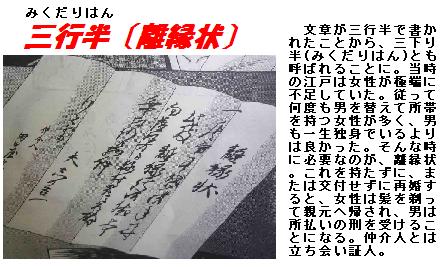 みくだりはん
三行半〔離縁状〕
離縁状
文章が三行半で書か
れたことから、三下り
半(みくだりはん)とも
呼ばれることに。当時
の江戸は女性が極端に
不足していた。従って
何度も男を替えて所帯
を持つ女性が多く、男
も一生独身でいるより
は良かった。そんな時
に必要なのが、離縁状
。これを持たずに、ま
たは交付せずに再婚す
ると、女性は髪を剃っ
て親元へ帰され、男は
所払いの刑を受けるこ
とになる。仲介人とは
立ち会い証人。